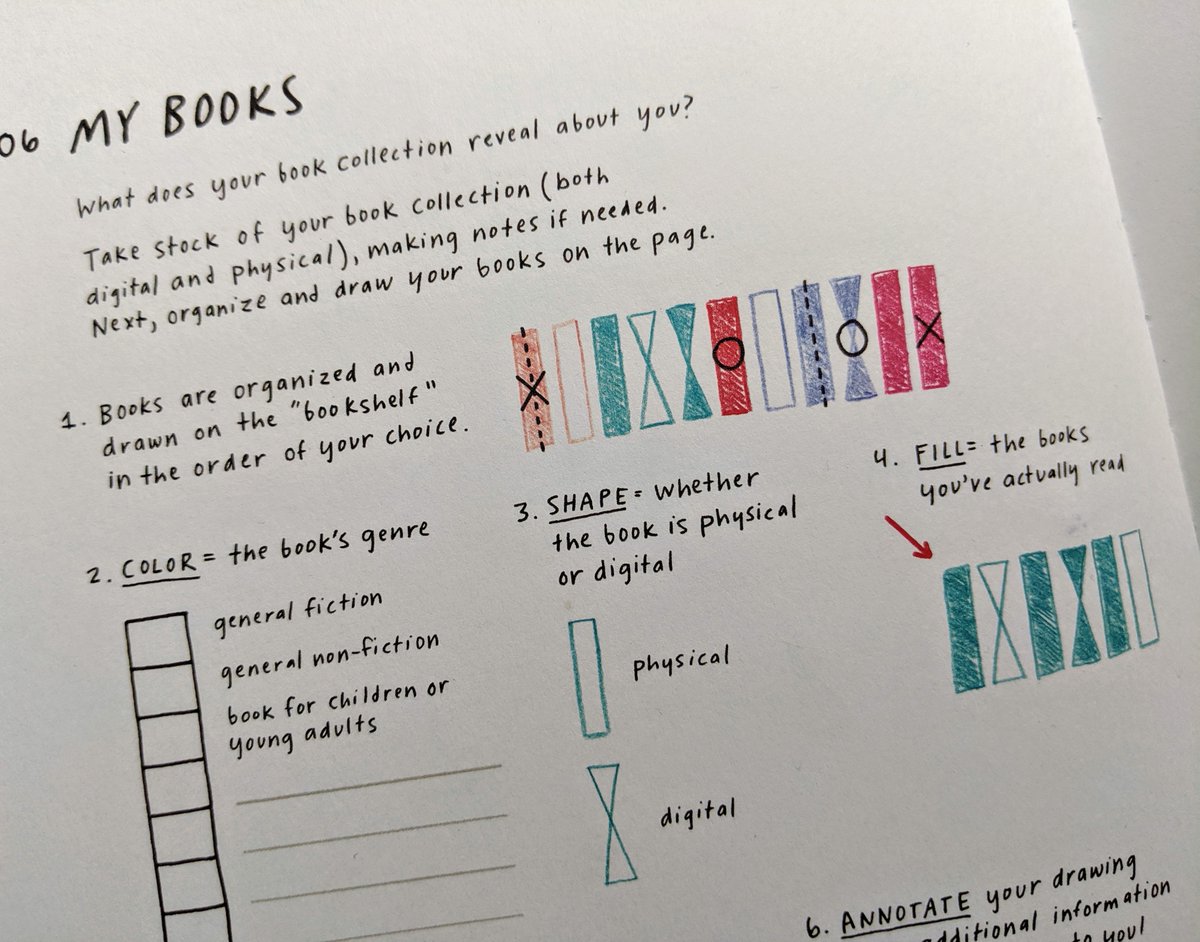 06 MY BOOKS
What does your book collection reveal about you?
Take stock of your book collection (both
digital and physical), making notes if needed.
Next, organize and draw your books on the page.
1. Books are organized and
drawn on the "bookshelf"
in the order of your choice.
2. COLOR = the book's genre
general fiction
general non-fiction
book for children or
young adults
3. SHAPE = whether
the book is physical
or digital
physical
digital
4. FILL = the books
you've actually read
6. ANNOTATE your drawing
additional information
to you!